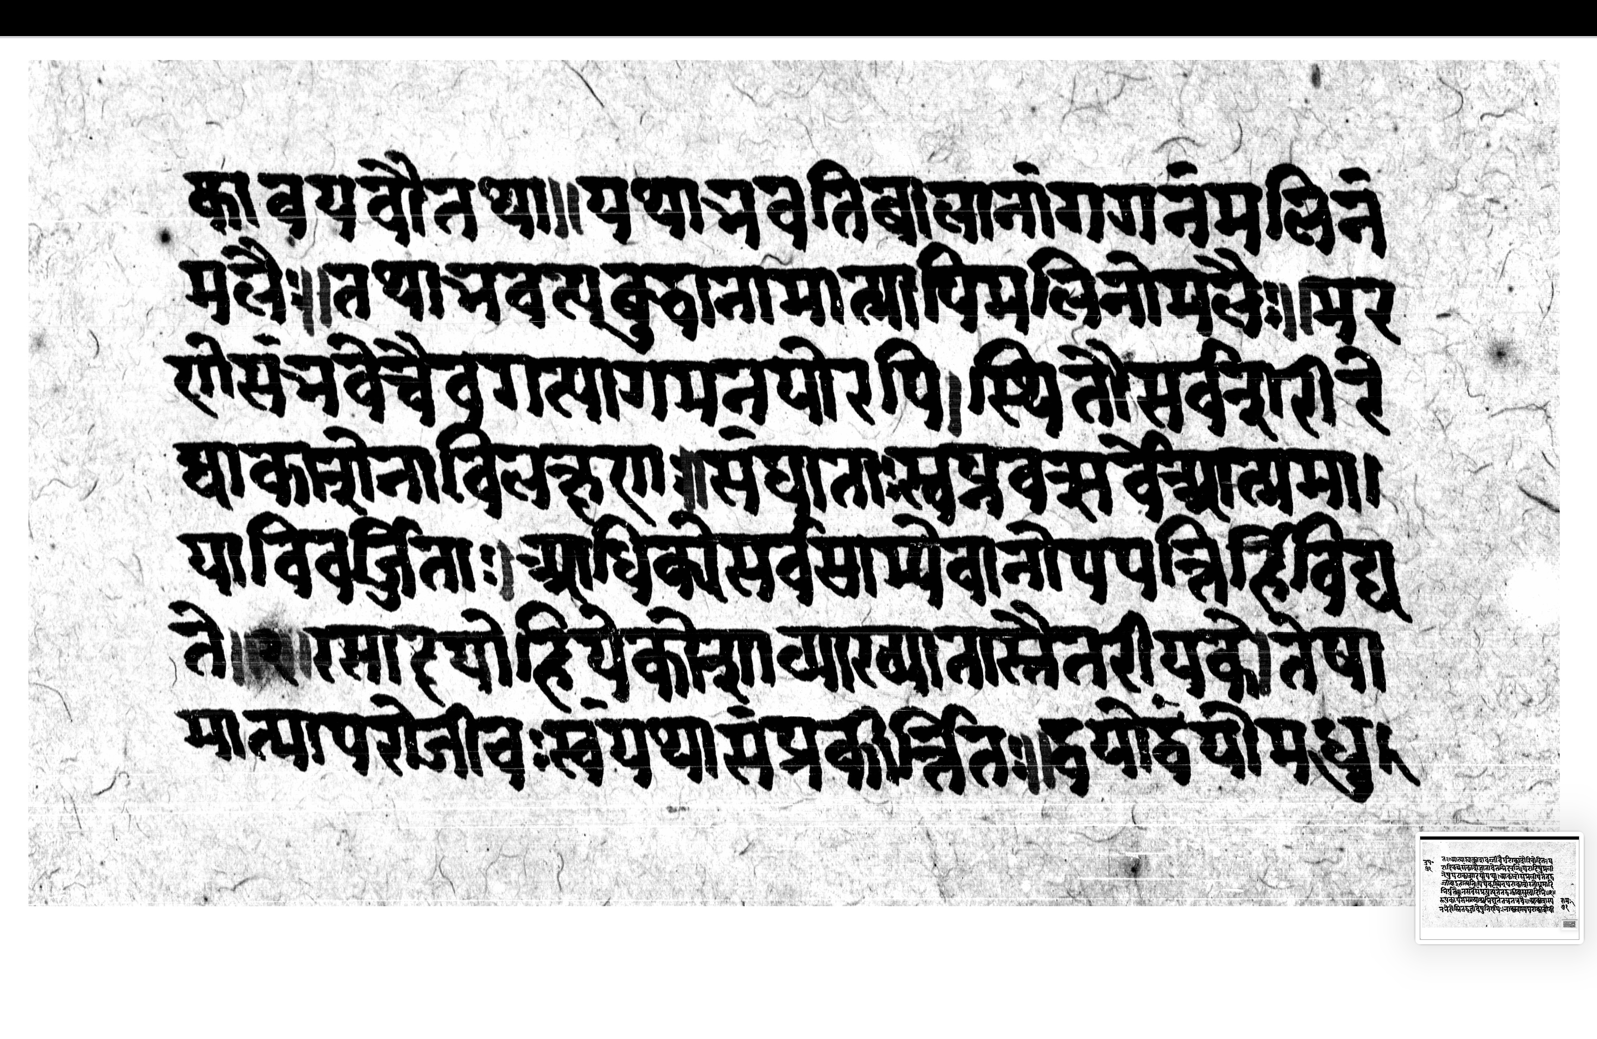 कावयवौतथा॥यथाभवतिबालानांगगनंमलिनं
मलैः॥तथाभवत्यबुद्धानामात्मापिमलिनोमलैः॥मर
णेसंभवेचैवगत्यागमनयोरपि।स्थितौसर्वशरीरे
ष्वाकाशेनाविलक्षणः॥संघाताःस्वप्नवत्सर्वेआत्ममा।
याविवर्जिताः।आधिक्येसर्वसाम्येवानोपपत्तिर्हिविद्य
ते॥रसादयोहियेकोशाव्याख्यातास्तैतरीयके।तेषा
मात्मापरोजीवःस्वंयथासंप्रकीर्त्तितः॥द्वयोर्द्वयोर्मधु